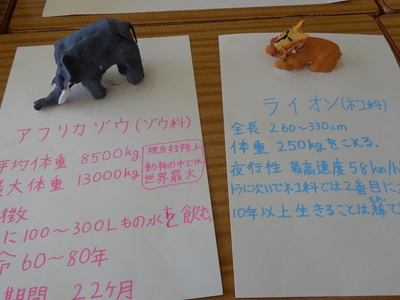 アフリカゾウ(ゾウ科)
平均体重 8500kg
最大体重 13000kg
現在する陸上
動物の中では
世界最大
徴
に100〜300Lもの水を飲む
命 60〜80年
期間 22ヶ月
ライオン(ネコ科)
全長 260〜330cm
体重 250kgをこえる。
夜行性 最高速度58km/h
トラに次いでネコ科では2番目に
10年以上生きることは稀で